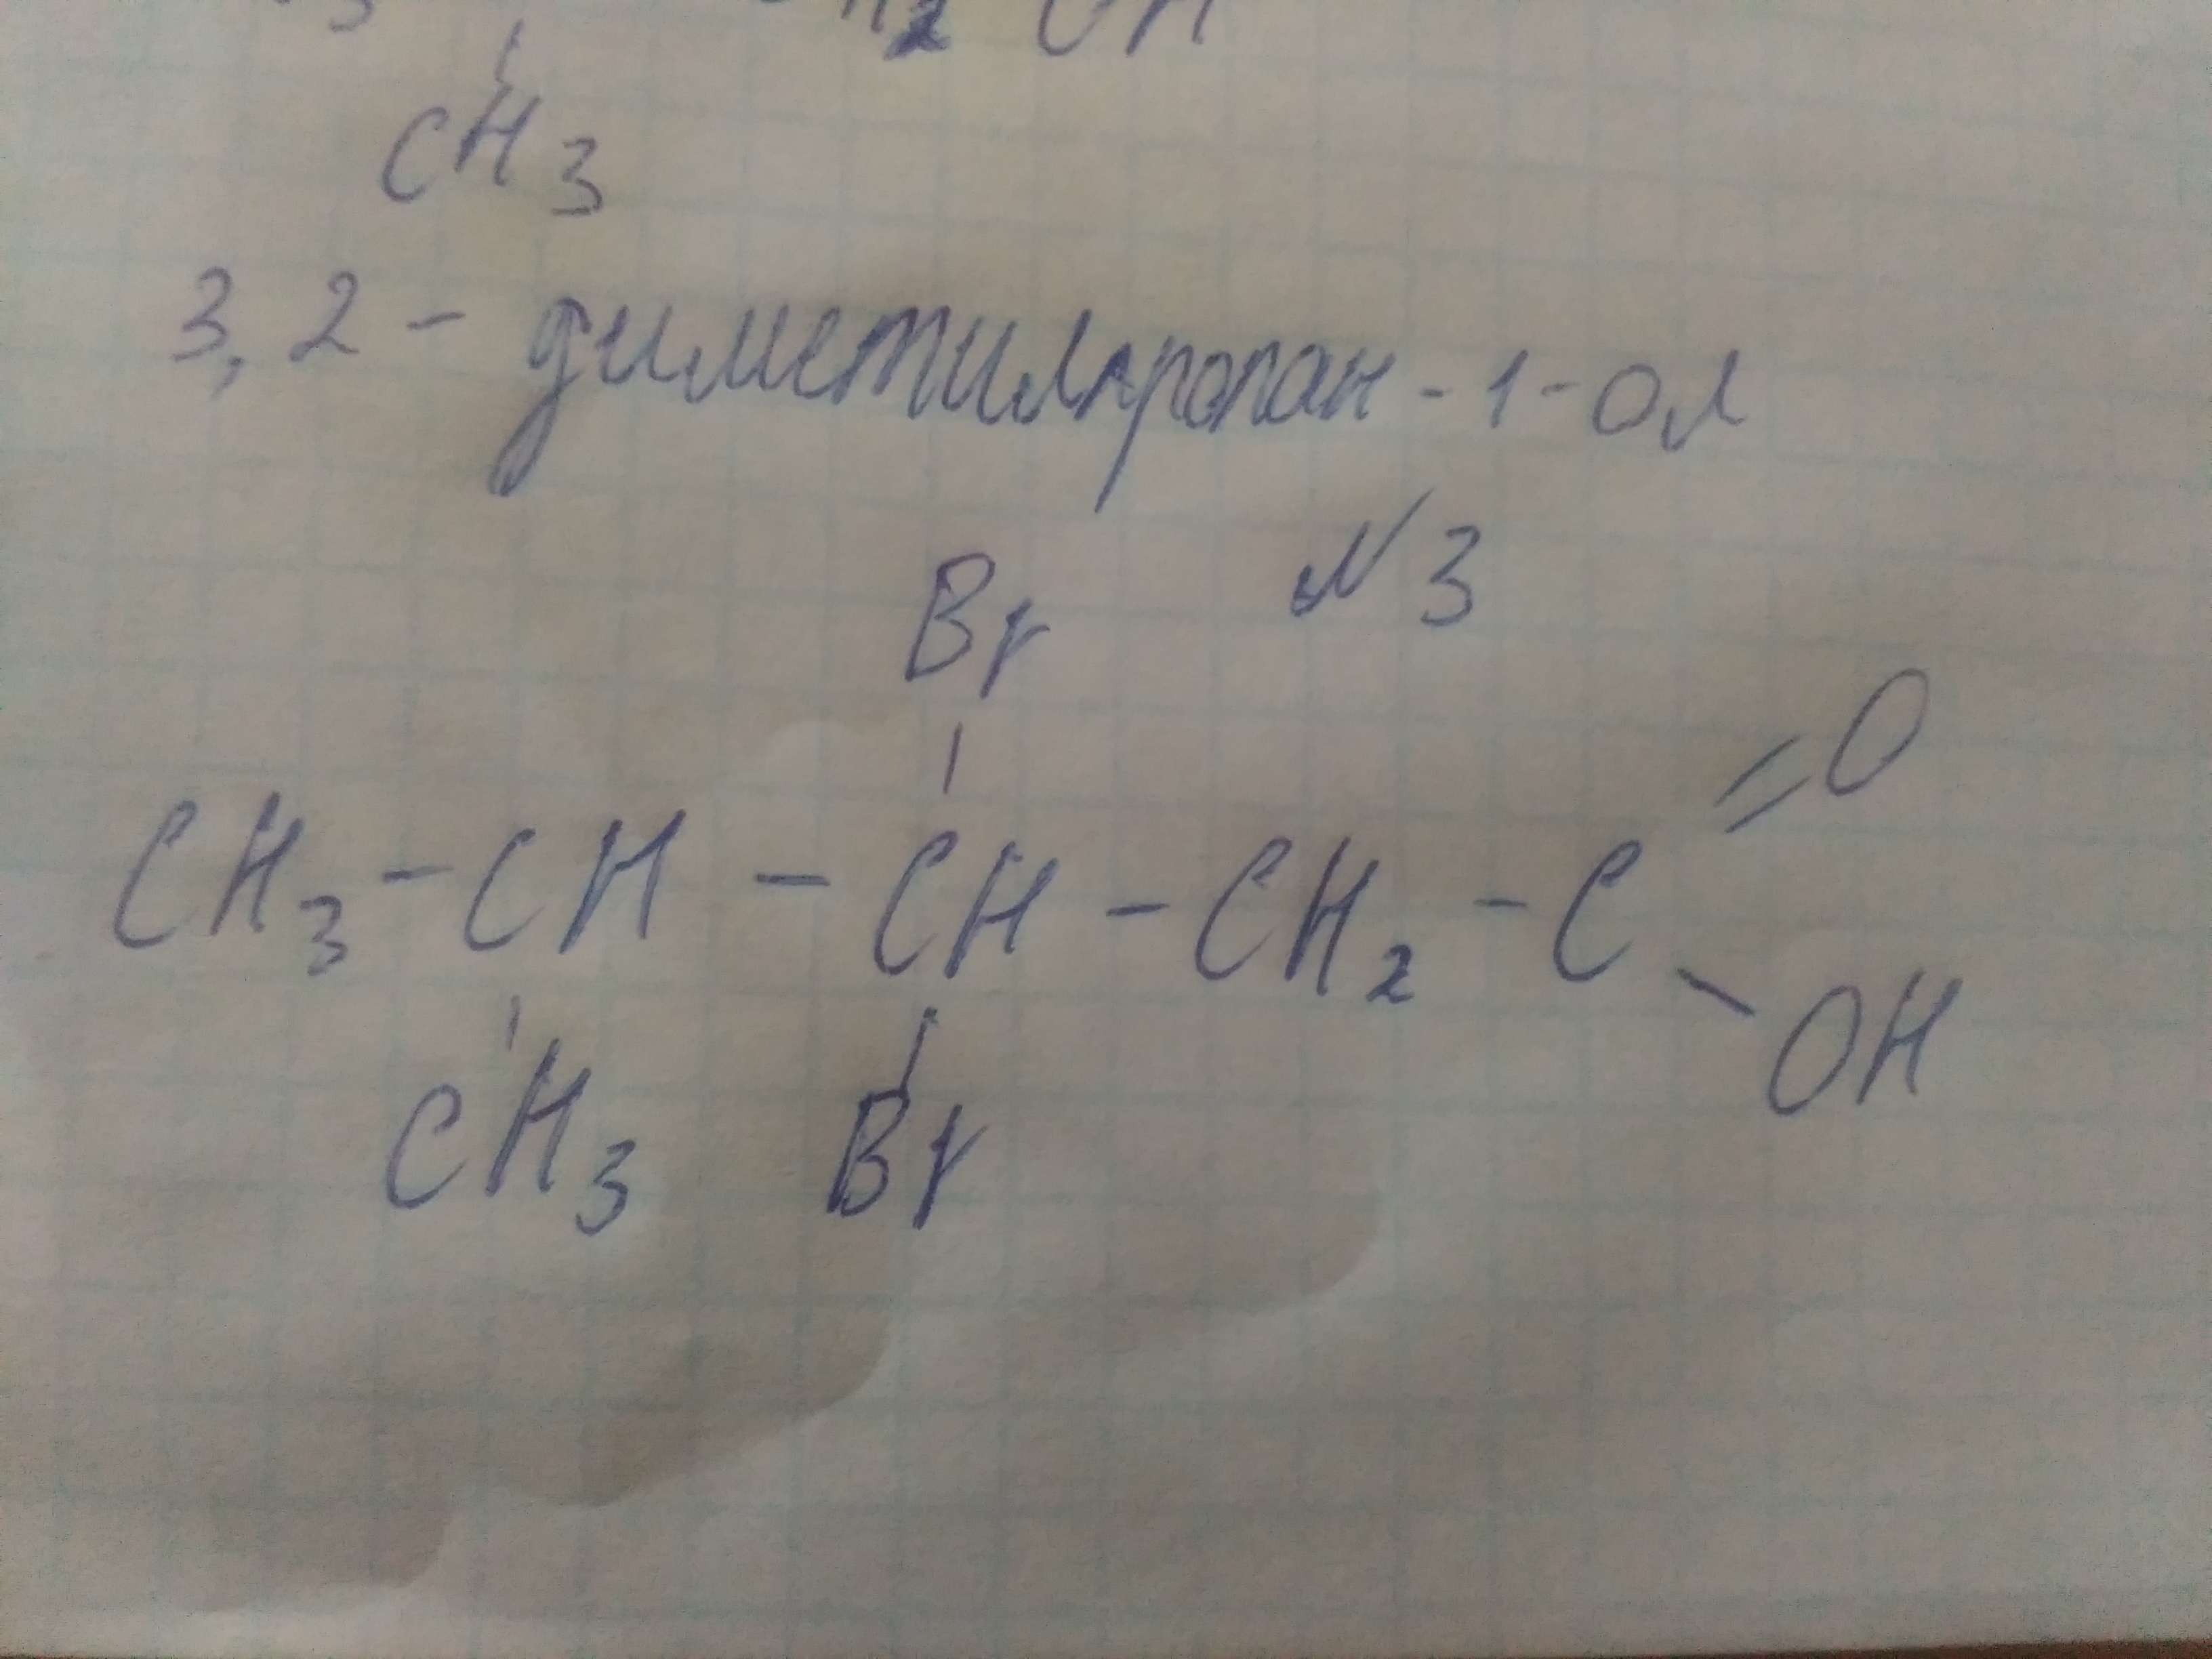 OH
CH3
3,2 - диметилпропан - 1 - ол
N3
Br
CH3 - CH - CH - CH2 - C = O
- OH
CH3 Br